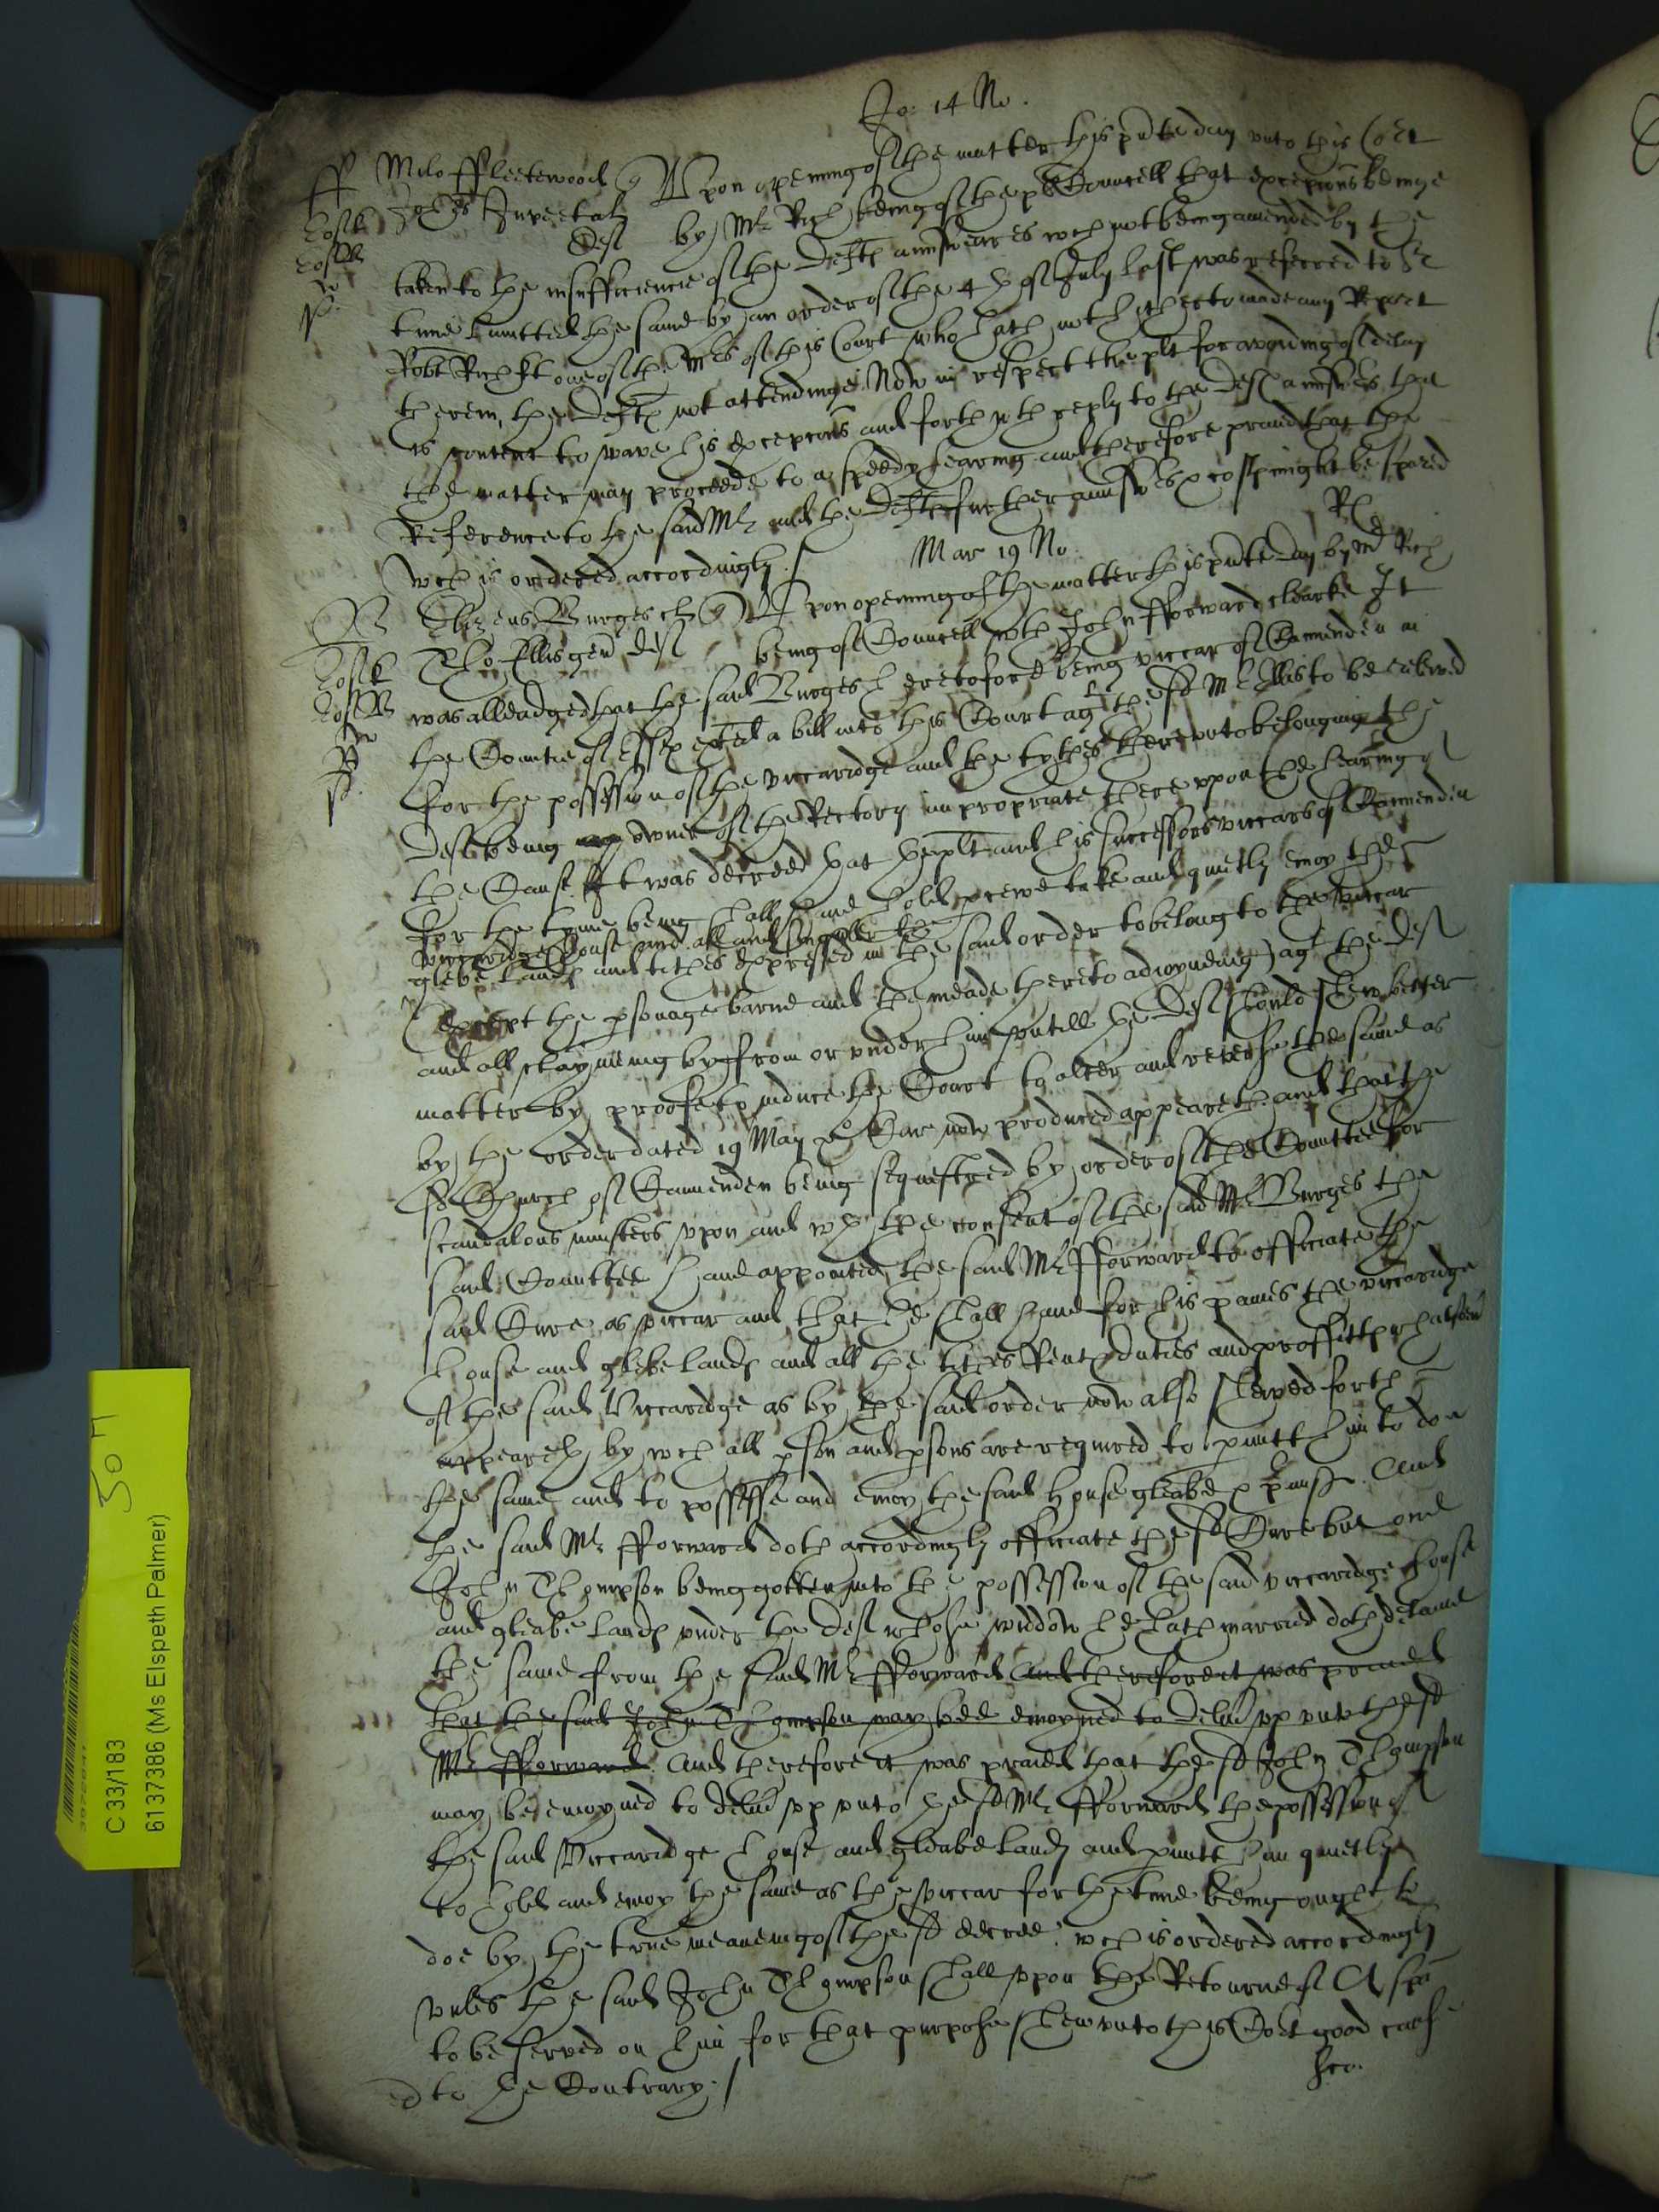 Jo: 14 No.
Milo ffleetewood q Upon openinge of the matter this pnte day unto this Cort
by Mr Rich being of the plts Councell that excepcons beinge
Def
taken to the insufficiencie of the Defts answeares wch not being amended by the
time limitted the same by an order of the 4th of July last was referred to Sr
Robt Rich kt one of the Mrs of this Court who hath not hitherto made any Report
therein, the Defts not attendinge. Now in respect the plt for avoiding of delay
is content to wave his excepcons and forthwth reply to the Def answers, that
the matter may proceede to a speedy hearing and therefore praied that the
Reference to the said Mr and the Defts further answers & costs might be spared
wch is ordered accordingly./
R
Mar 19 No.
Burges cl q Upon opening of the matter this pnte day by Mr Rich
Tho: Ellis gen Def being of Councell wth John fforward clearke It
was alleadged that the said Burges heretofore being viccar of Camenden in
the Countie of Essex exhted a bill into this Court agt the sd Mr Ellis to be releived
for the possession of the viccaridge and the tythes thereunto belonging the
Deft being owner of the Rectory impropriate thereupon the hearing of
the Cause It was decreed that the plt and his successors viccars of Camenden
for the tyme being shall have hold receive take and quietly enioy the
viccaridge house and all and singuler the
glebe lands and tithes expressed in the said order to belong to the viccar
(except the psonage barne and the meade thereto adioyneing) agt the Def
and all claymeing by from or under him untill the Def should shew better
matter by proofe to induce the Court to alter and reverse the same as
by the order dated 19 May Car now produced appeareth. and that the
sd Church of Camenden being sequestred by order of the Comittee for
scandalous ministers upon and wth the consent of the said Mr Burges the
said Comittee have appointed the said Mr fforward to officiate the
said Cure as viccar and that he shall have for his paines the viccaridge
house and glebe lands and all the tithes Rents duties and proffitts whatsoevr
of the said Viccaridge as by the said order now also shewed forth
appeareth, by wch all pson and psons are required to pmitt him to doe
the same and to possesse and enioy the said house gleabe & pmiss. And
the said Mr fforward doth accordingly officiate the sd Cure but one
John Thompson being gotten into the possession of the said viccaridge house
and gleabe lands under the Def whose widdow he hath married doth detaine
the same from the said Mr fforward And therefore it was praied
that the said John Thompson may bee enioyned to deliver up unto the sd
Mr fforward. And therefore it was praied that the sd John Thompson
may be enioyned to deliver up unto the sd Mr fforward the possession of
the said Viccaridge house and gleabe lands and pmitt him quietly
to hold and enioy the same as the viccar for the time being ought to
doe by the true meaneing of the sd decree. wch is ordered accordingly
unles the said John Thompson shall upon the Retourne of A spa
to be served on him for that purpose shew unto this Cort good cause
to the Contrary./
C 33/183
61 37386 (Ms Elspeth Palmer)